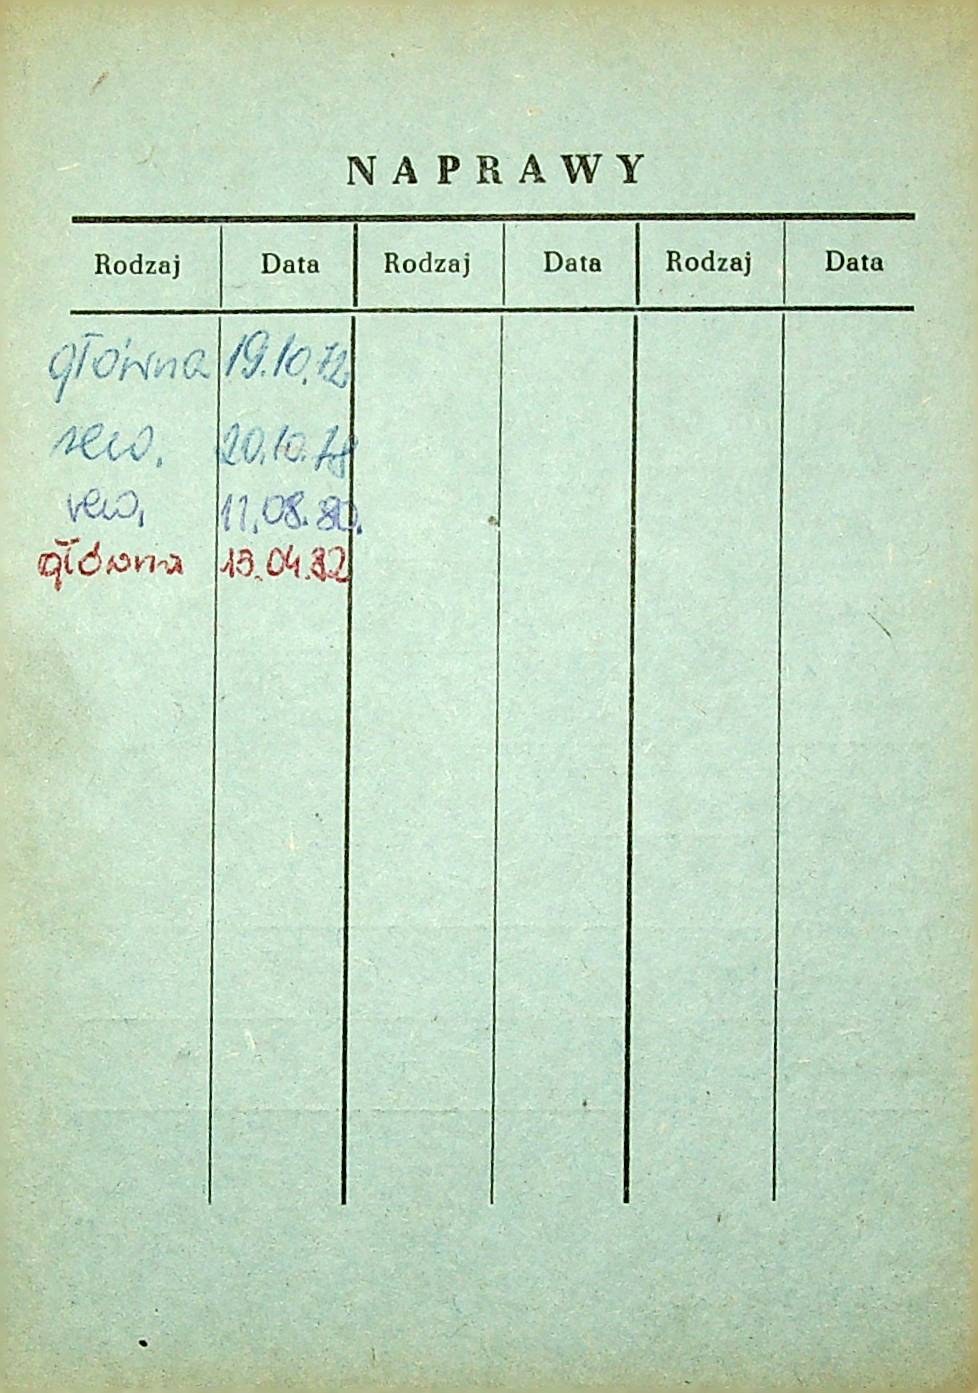 NAPRAWY
Rodzaj Data Rodzaj Data Rodzaj Data
główna 19.10.72
rew. 20.10.78
rew. 11.08.80.
główna 13.04.82